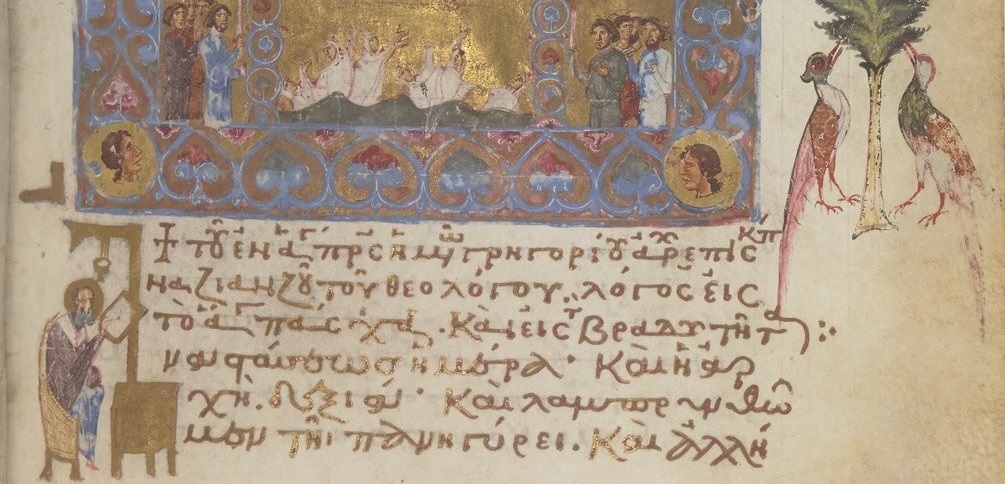 ✝ τοῦ ἐν ἁγ πρς ἡμῶ γρηγορίου ἀρχεπισκπ
ναζιανζοῦ τοῦ θεολόγου, λόγος εἰς
τὸ ἅγ πασχα. Καὶ εἰς τ βραδυτῆτα :·
ναστάσεως ἡμέρα· Καὶ ἡ ἀρ
χὴ. δεξιά· Καὶ λαμπρυνθῶ
μεν τῆι πανηγύρει. Καὶ ἀλλή